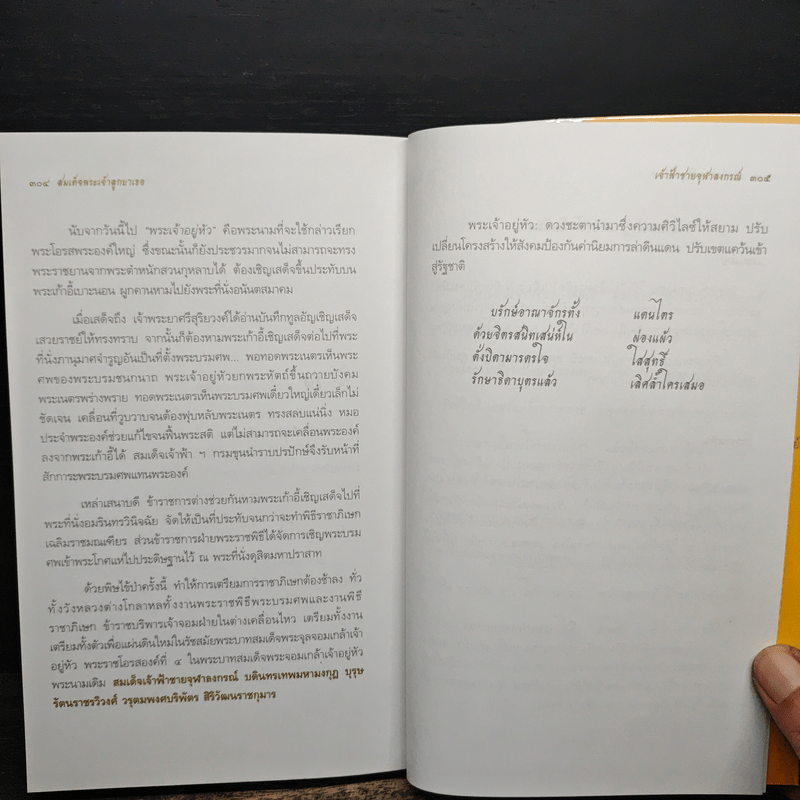 ๓๐๔ สมเด็จพระเจ้าลูกยาเธอ
นับจากวันนี้ไป “พระเจ้าอยู่หัว” คือพระนามที่จะใช้กล่าวเรียก
พระโอรสพระองค์ใหญ่ ซึ่งขณะนั้นก็ยังประชวรมากจนไม่สามารถจะทรง
พระราชยานจากพระตำหนักสวนกุหลาบได้ ต้องเชิญเสด็จขึ้นประทับบน
พระเก้าอี้เบาะนอน ผูกคานหามไปยังพระที่นั่งอนันตสมาคม
เมื่อเสด็จถึง เจ้าพระยาศรีสุริยวงศ์ได้อ่านบันทึกทูลอัญเชิญเสด็จ
เสวยราชย์ให้ทรงทราบ จากนั้นก็ต้องหามพระเก้าอี้เชิญเสด็จต่อไปที่พระ
ที่นั่งภานุมาศจำรูญอันเป็นที่ตั้งพระบรมศพ... พอทอดพระเนตรเห็นพระ
ศพของพระบรมชนกนาถ พระเจ้าอยู่หัวยกพระหัตถ์ขึ้นถวายบังคม
พระเนตรพร่างพราย ทอดพระเนตรเห็นพระบรมศพเดี๋ยวใหญ่เดี๋ยวเล็กไม่
ชัดเจน เคลื่อนที่วูบวาบจนต้องฟุบหลับพระเนตร ทรงสลบแน่นิ่ง หมอ
ประจำพระองค์ช่วยแก้ไขจนฟื้นพระสติ แต่ไม่สามารถจะเคลื่อนพระองค์
ลงจากพระเก้าอี้ได้ สมเด็จเจ้าฟ้า ฯ กรมขุนบำราบปรปักษ์จึงรับหน้าที่
สักการะพระบรมศพแทนพระองค์
เหล่าเสนาบดี ข้าราชการต่างช่วยกันหามพระเก้าอี้เชิญเสด็จไปที่
พระที่นั่งอมรินทรวินิจฉัย จัดให้เป็นที่ประทับจนกว่าจะทำพิธีราชาภิเษก
เฉลิมราชมณเฑียร ส่วนข้าราชการฝ่ายพระราชพิธีได้จัดการเชิญพระบรม
ศพเข้าพระโกศแห่ไปประดิษฐานไว้ ณ พระที่นั่งดุสิตมหาปราสาท
ด้วยพิษไข้ป่าครั้งนี้ ทำให้การเตรียมการราชาภิเษกต้องช้าลง ทั่ว
ทั้งวังหลวงต่างโกลาหลทั้งงานพระราชพิธีพระบรมศพและงานพิธี
ราชาภิเษก ข้าราชบริพารเจ้าจอมฝ่ายในต่างเคลื่อนไหว เตรียมทั้งงาน
เตรียมทั้งตัวเพื่อแผ่นดินใหม่ในรัชสมัยพระบาทสมเด็จพระจุลจอมเกล้าเจ้า
อยู่หัว พระราชโอรสองค์ที่ ๔ ในพระบาทสมเด็จพระจอมเกล้าเจ้าอยู่หัว
พระนามเดิม สมเด็จเจ้าฟ้าชายจุฬาลงกรณ์ บดินทรเทพมหามงกุฎ บุรุษ
รัตนราชรวิวงศ์ วรุตมพงศบริพัตร สิริวัฒนราชกุมาร
เจ้าฟ้าชายจุฬาลงกรณ์ ๓๐๕
พระเจ้าอยู่หัว: ดวงชะตานำมาซึ่งความศิวิไลซ์ให้สยาม ปรับ
เปลี่ยนโครงสร้างให้สังคมป้องกันค่านิยมการล่าดินแดน ปรับเขตแคว้นเข้า
สู่รัฐชาติ
บรักษ์อาณาจักรทั้ง แดนไตร
ด้วยจิตรสนิทเสน่ห์ใน ผ่องแผ้ว
ดั่งปิตามารดรใจ ใสสุทธิ์
รักษาธิดาบุตรแล้ว เลิศล้ำใครเสมอ